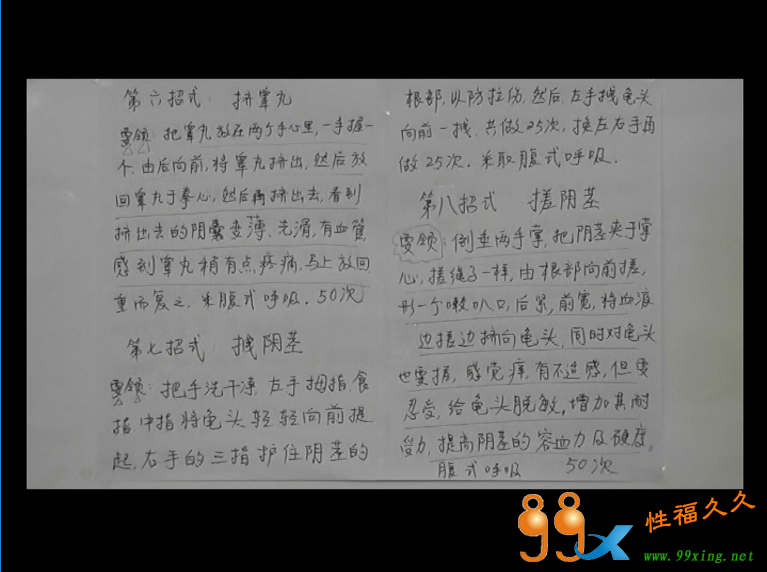 第六招式： 挤睾丸
要领 把睾丸放在两个手心里，一手握一
个，由后向前，将睾丸挤出，然后放
回睾丸于拳心，然后再挤出去，看到
挤出去的阴囊变薄、光滑，有血管，
感到睾丸稍有点疼痛，马上放回
重而复之，采腹式呼吸。50次
第七招式 拽阴茎
要领：把手洗干净，左手拇指、食
指中指将龟头轻轻向前提
起，右手的三指护住阴茎的
根部，以防拉伤，然后，左手拽龟头
向前一拽，共做25次，换左右手再
做25次，采取腹式呼吸.
第八招式 搓阴茎
要领：倒垂两手掌，把阴茎夹于掌
心，搓绳子一样，由根部向前搓，
形一个喇叭口，后紧，前宽，将血液
边搓边挤向龟头，同时对龟头
也要搓，感觉痒，有不适感，但要
忍受，给龟头脱敏，增加其耐
受力，提高阴茎的容血力及硬度。
腹式呼吸 50次
99x 性福久久
www.99xing.net